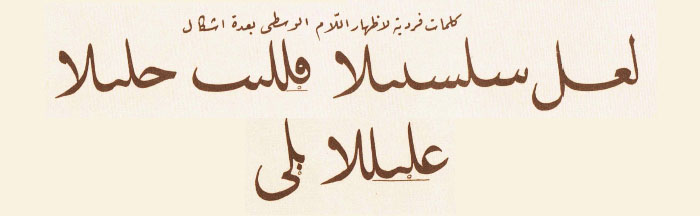 كلمات فردية لاظهار اللّام الوسطى بعدة اشكال
لعل سلسبيلا حليلا
بلى